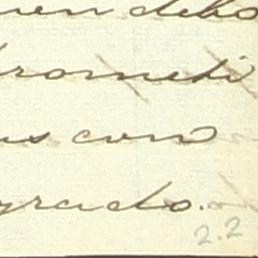 en debo
prometi
us con
grado.
2.2